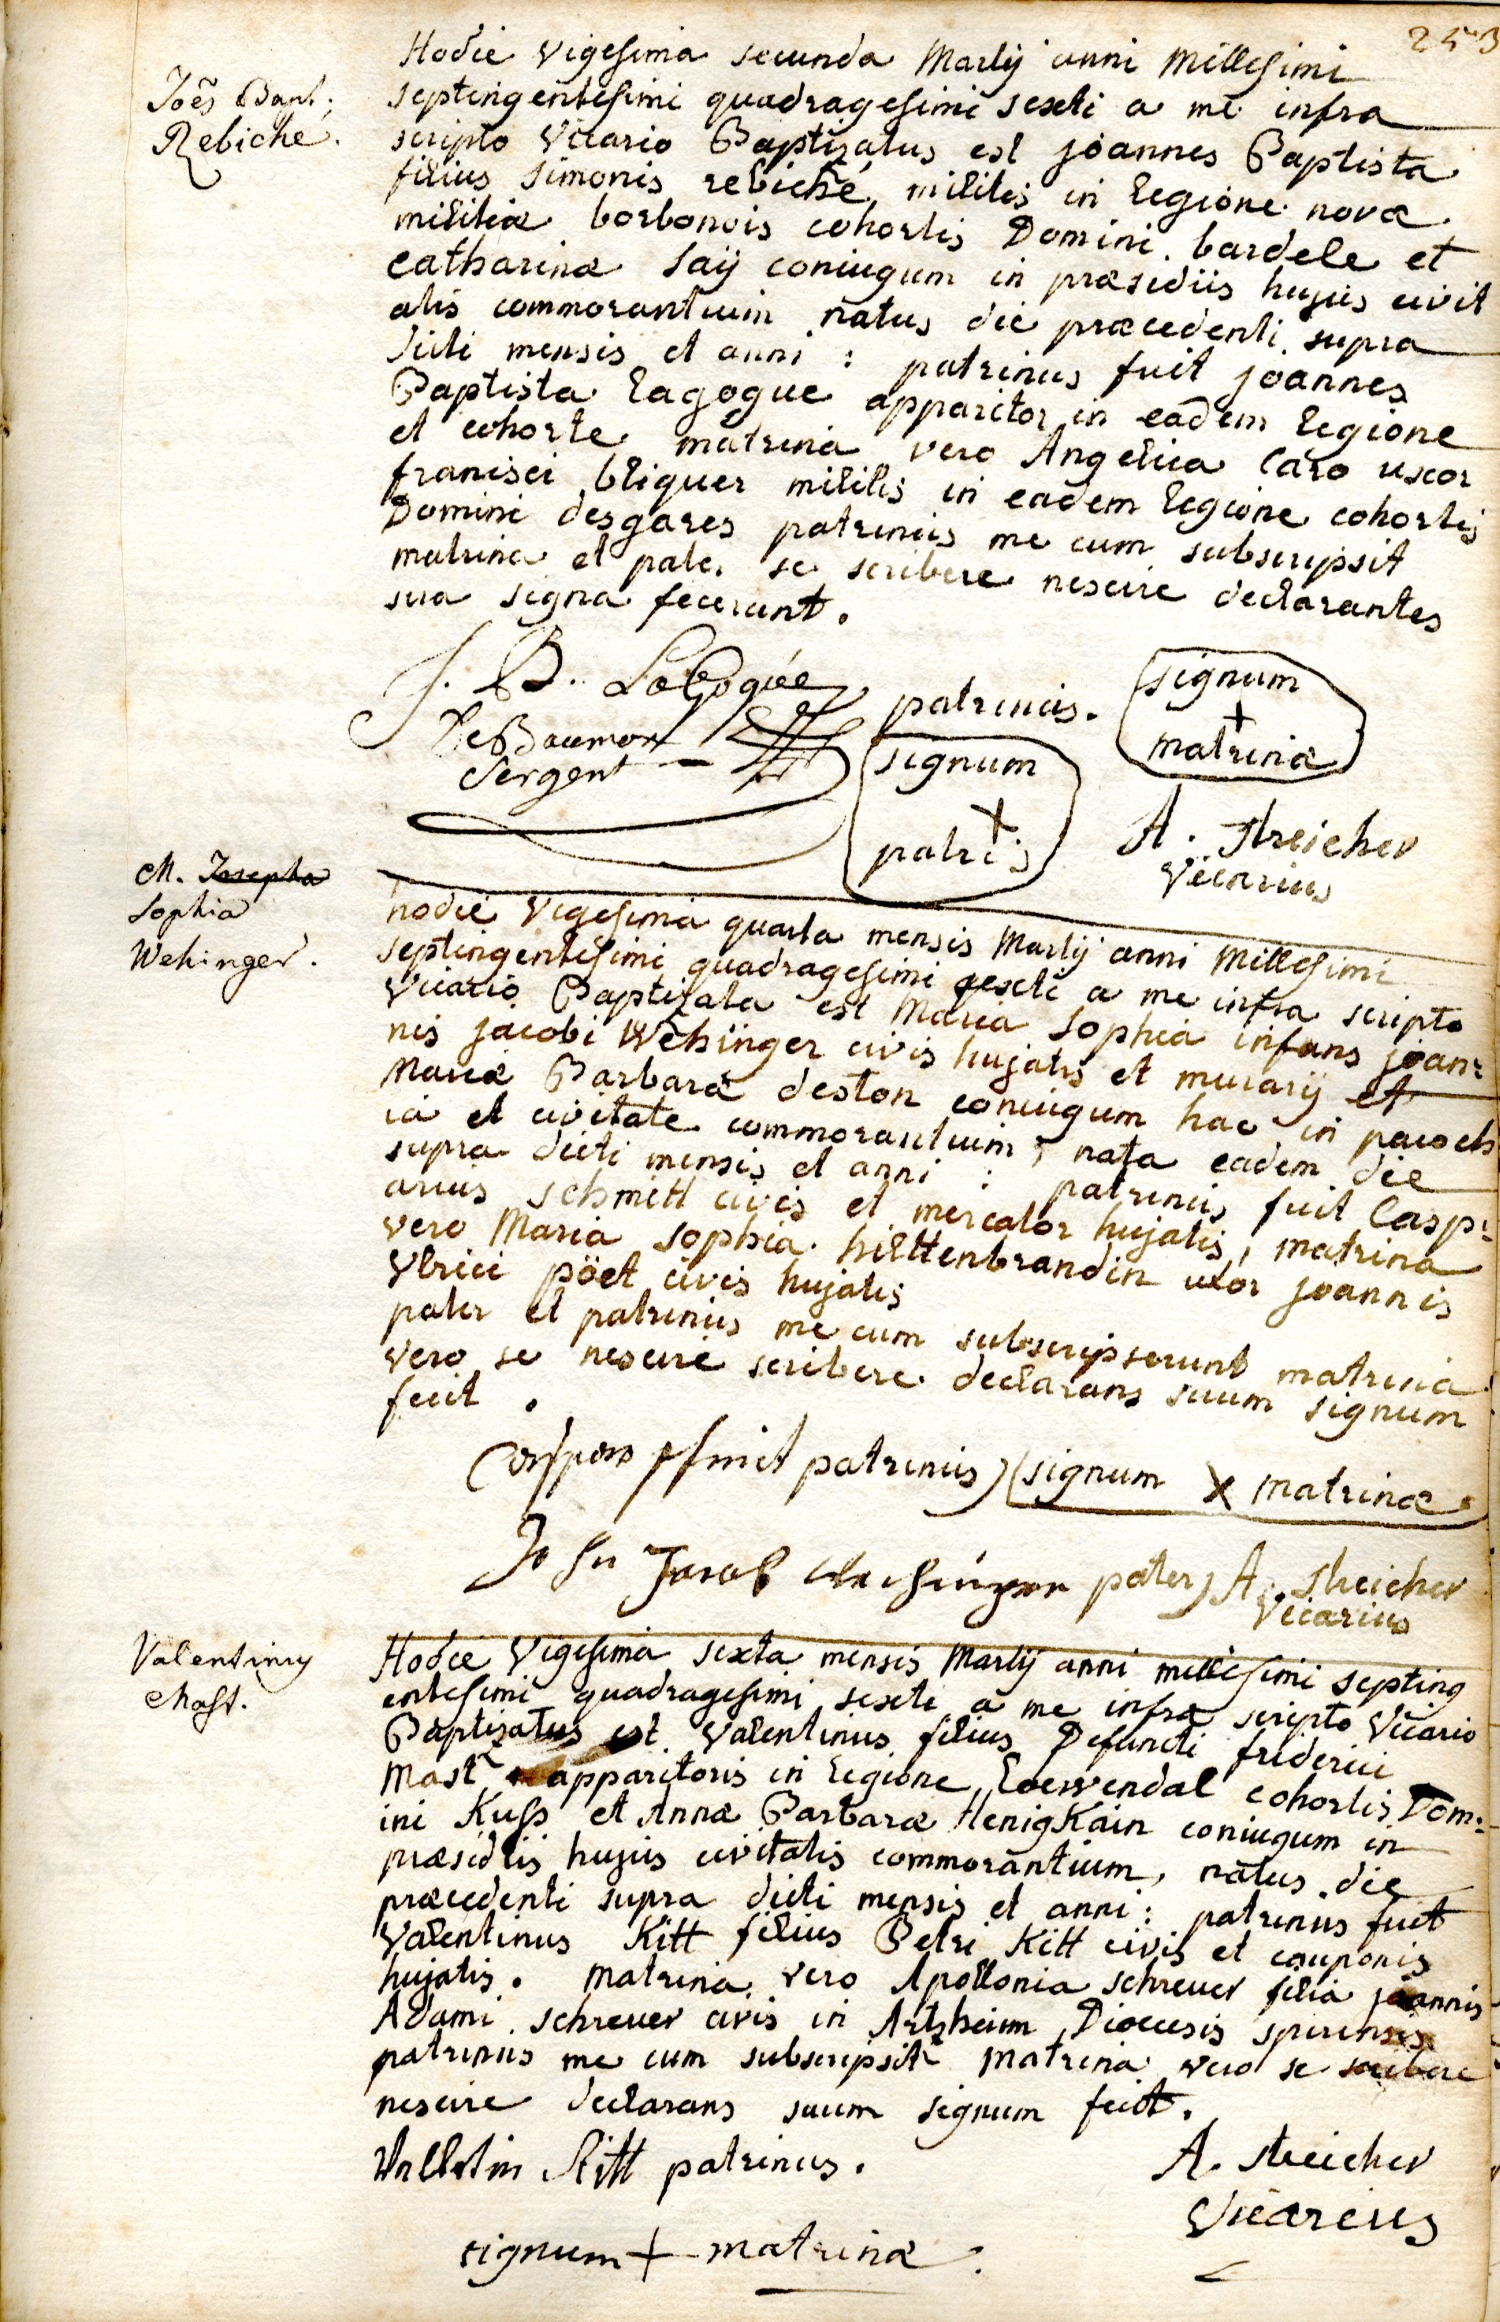 253
Joēs Bapt.
Rebiché.
Hodie vigesima secunda Martij anni millesimi
septingentesimi quadragesimi sexti a me infra
scripto vicario Baptizatus est joannes Baptista
filius simonis rebiché militis in legione nova
militiæ borbonois cohortis Domini bardele et
catharinæ saij coniugum in præsidiis hujus civit
atis commorantium natus die præcedenti supra
dicti mensis et anni : patrinus fuit joannes
Baptista Lagogue apparitor in eadem legione
et cohorte matrina vero Angelica Caro uxor
francisci bliguer militis in eadem legione cohortis
Domini desgares patrinus me cum subscripsit
matrina et pater se scribere nescire declarantes
sua signa fecerunt.
J. B. LaGogúe patrinus.
Sergent
signum + matrinæ
signum + patris
A. Streicher
vicarius
M. Josepha
Sophia
Wehinger.
hodie vigesima quarta mensis Martij anni millesimi
septingentesimi quadragesimi sexti a me infra scripto
vicario Baptizata est Maria Sophia infans joan=
nis jacobi Wehinger civis hujatis et murarij et
Mariæ Barbara deston coniugum hac in paroch
ia et civitate commorantium, nata eadem die
supra dicti mensis et anni : patrinus fuit Casp=
arus schmitt civis et mercator hujatis, matrina
vero Maria Sophia hilttenbrandin uxor joannis
Vlrici pöet civis hujatis
pater et patrinus me cum subscripserunt matrina
vero se nescire scribere declarans suum signum
fecit.
Casparus schmit patrinus signum x matrinæ
Jacob pater A. Streicher
vicarius
Valentinus
Mast.
Hodie vigesima sexta mensis Martij anni millesimi septing
entesimi quadragesimi sexti a me infra scripto vicario
Baptizatus est valentinus filius Defuncti friderici
Mast apparitoris in legione Loewendal cohortis Dom=
ini Kuss et Annæ Barbaræ Henigkain coniugum in
præsidiis hujus civitatis commorantium, natus die
præcedenti supra dicti mensis et anni : patrinus fuit
valentinus Kitt filius Petri Kitt civis et cauponis
hujatis. matrina vero Apollonia schreuer filia joannis
Adami schreuer civis in Artzheim Diœcesis spirensis
patrinus me cum subscripsit matrina vero se scribere
nescire declarans suum signum fecit.
Kitt patrinus.
A. Streicher
vicarius
signum + matrinæ.